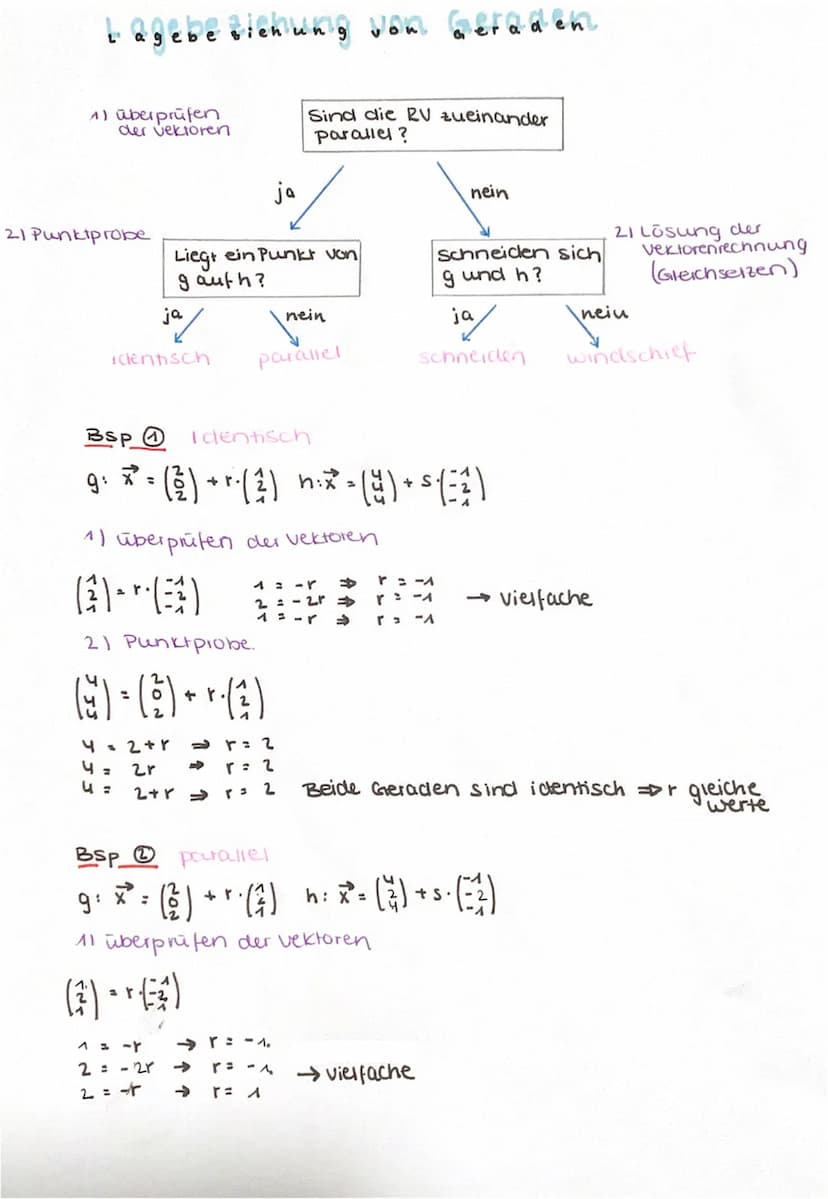 Lagebeziehung von Geraden
1) überprüfen
der vektoren
Sind die RV zueinander
parallel?
ja
nein
2) Punktprobe
Liegt ein Punkt von
g auf h?
schneiden sich
g und h?
2) Lösung der
vektorenrechnung
(Gleichsetzen)
ja
nein
ja
nein
identisch
parallel
schneiden
windschief
Bsp ① Identisch
g: x⃗ = (2 0 2) + r·(1 2 1) h: x⃗ = (4 4 4) + s·(-1 -2 -1)
1) überprüfen der vektoren
(1 2 1) = r·(-1 -2 -1)
1 = -r ⇒ r = -1
2 = -2r ⇒ r = -1
1 = -r ⇒ r = -1
→ vielfache
2) Punktprobe.
(4 4 4) = (2 0 2) + r·(1 2 1)
4 = 2+r ⇒ r = 2
4 = 2r ⇒ r = 2
4 = 2+r ⇒ r = 2
Beide Geraden sind identisch ⇒ r gleiche
werte
Bsp ② parallel
g: x⃗ = (2 0 2) + r·(1 2 1) h: x⃗ = (4 2 4) + s·(-1 -2 -1)
1) überprüfen der vektoren
(1 2 1) = r·(-1 -2 -1)
1 = -r → r = -1.
2 = -2r → r = -1
2 = -r → r = 1
→ vielfache